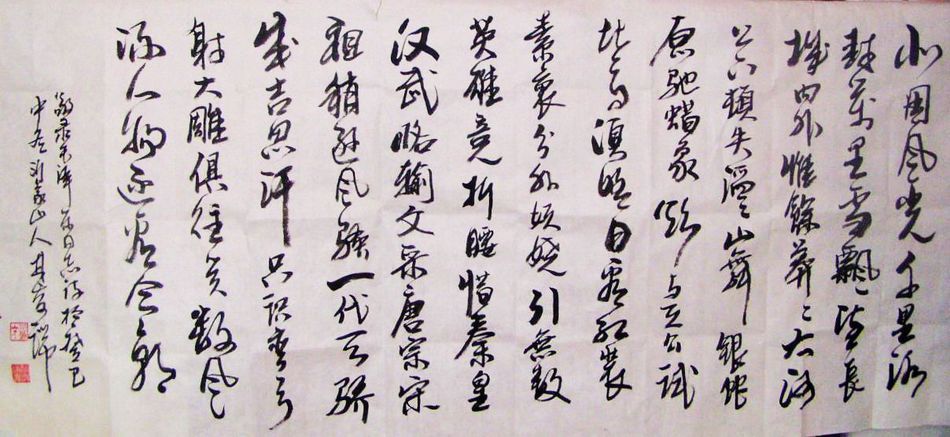 北国风光千里冰
封萬里雪飘望长
城内外惟餘莽々大河
上下頓失滔々山舞银蛇
原驰蜡象欲与天公试
比高须晴日看红装
素裹分外妖娆引無数
英雄竞折腰惜秦皇
汉武略输文采唐宗宋
祖稍逊风骚一代天骄
成吉思汗只识弯弓
射大雕俱往矣数风
流人物还看今朝
敬录毛泽东同志词於癸巳
中冬刘家山人